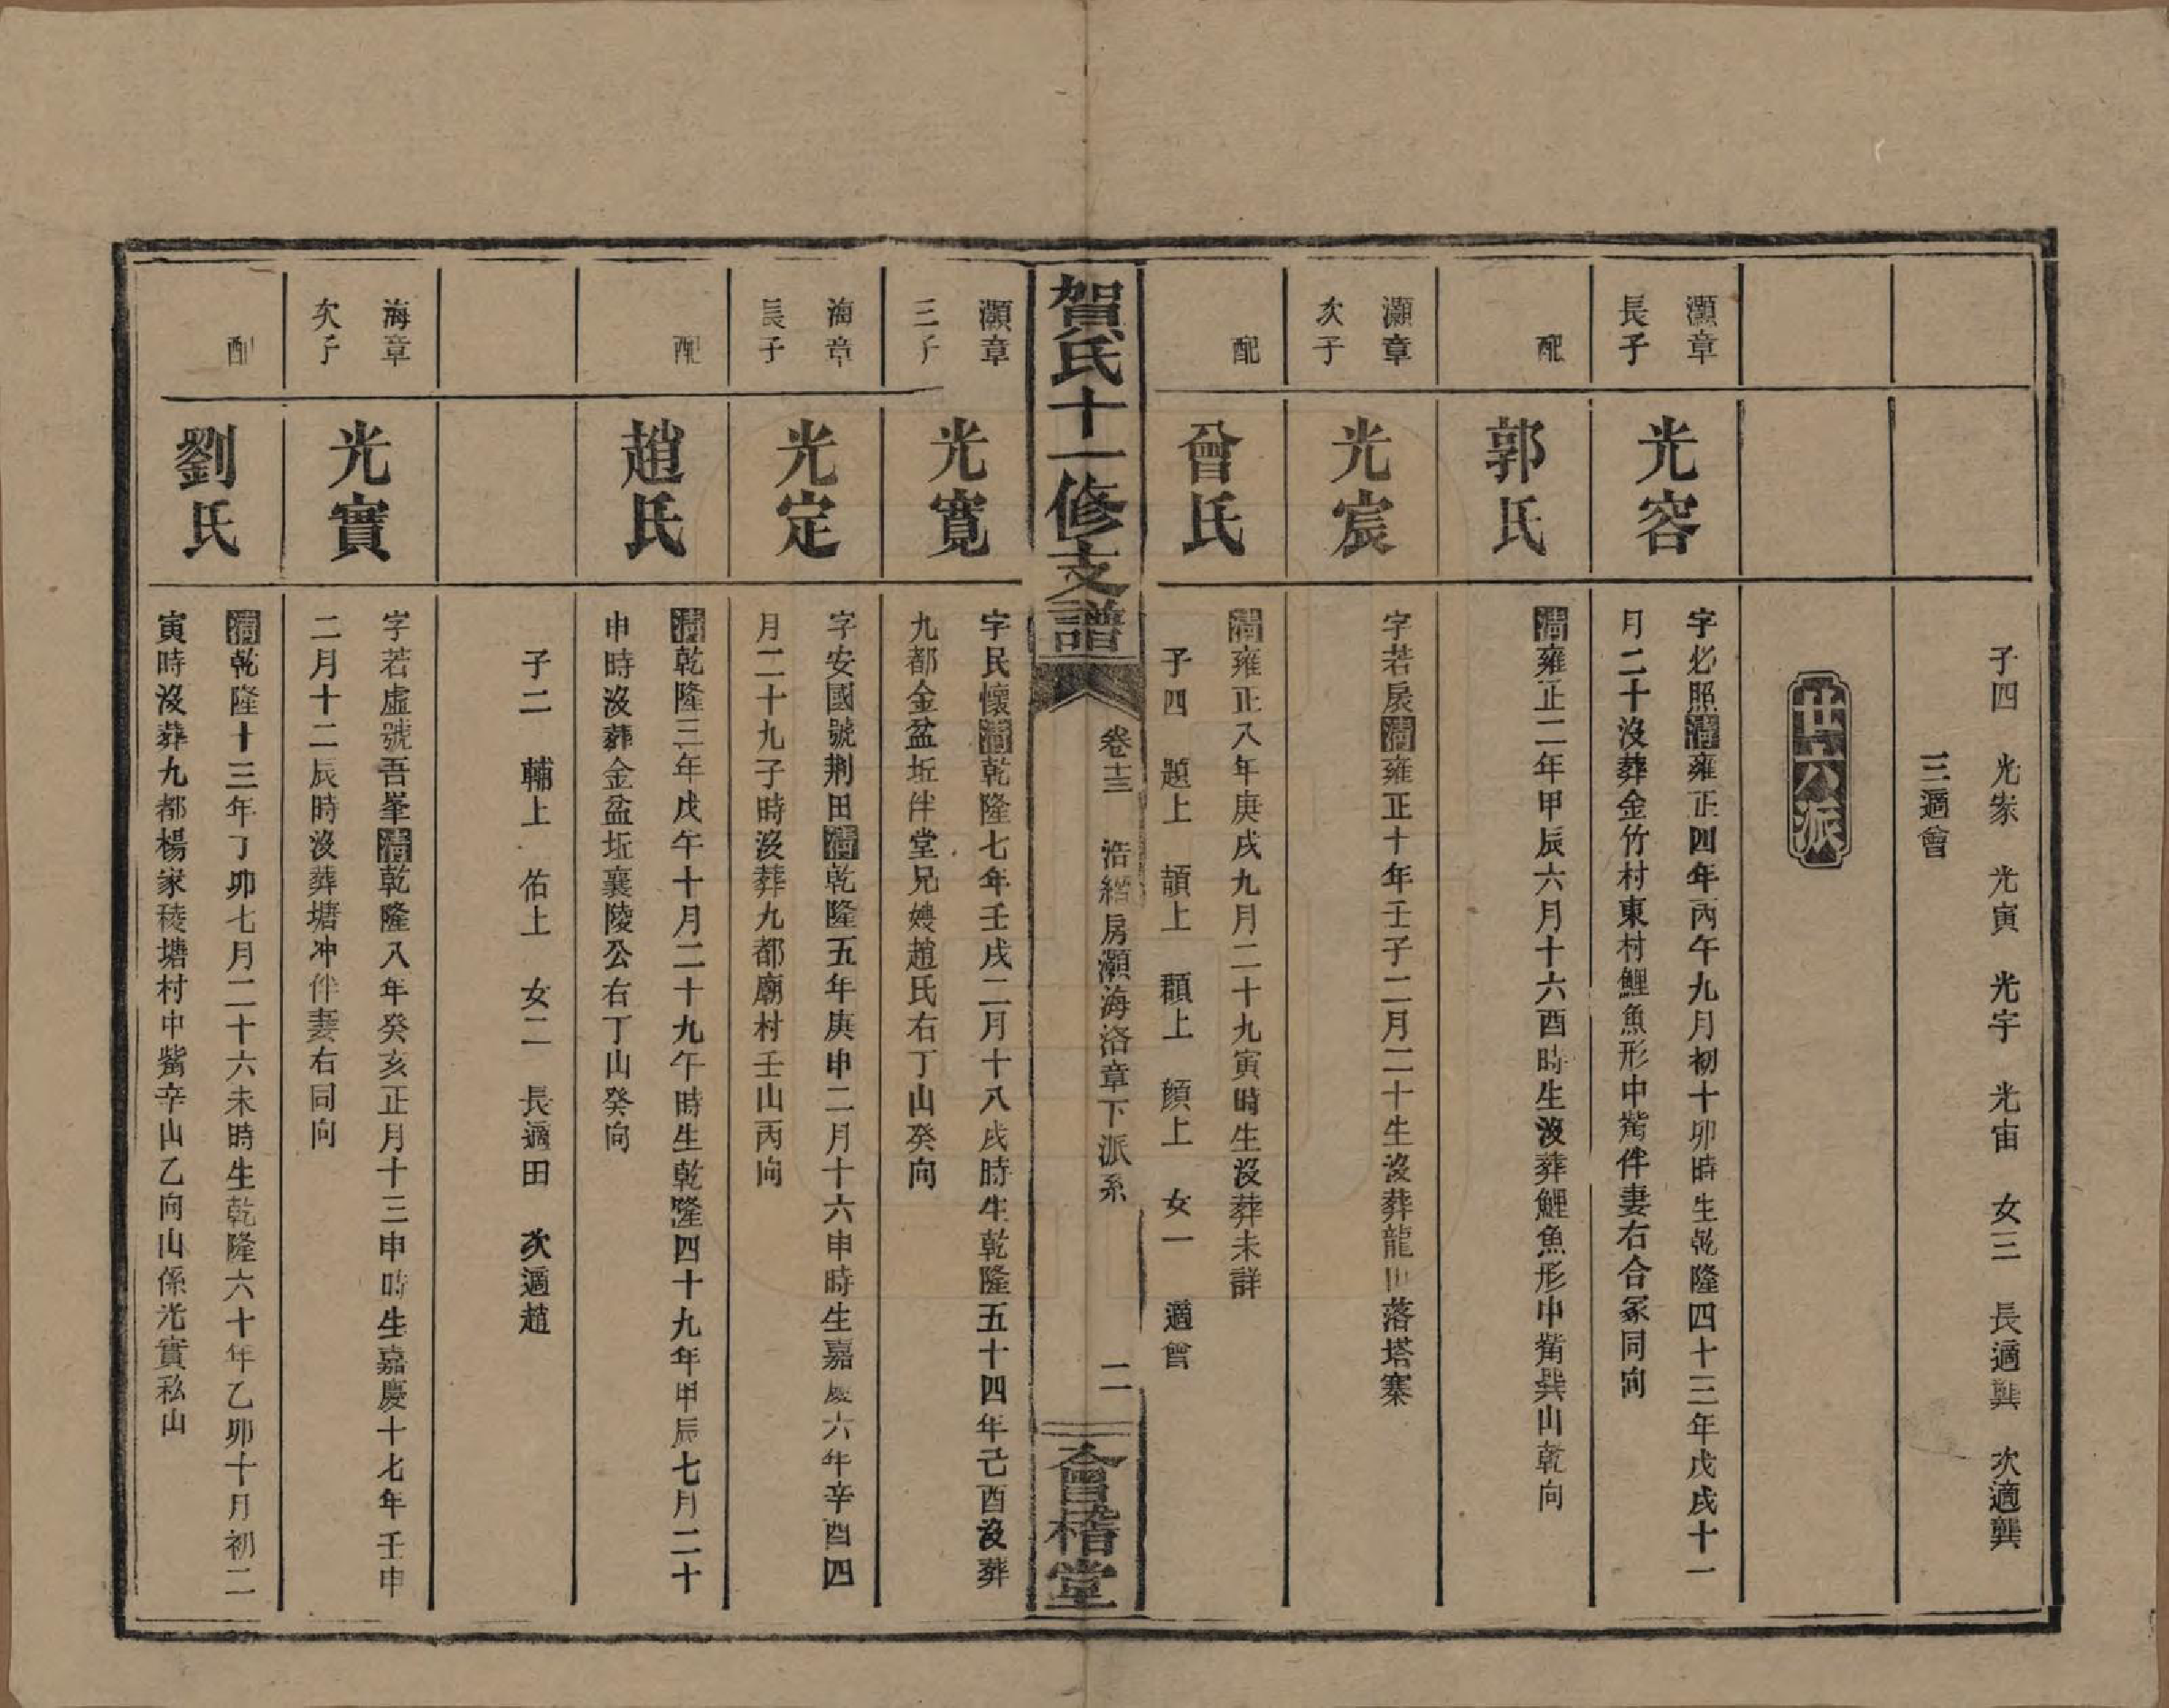 子四 光家 光寅 光宇 光宙 女三 長適龔 次適龔
三適曾
世公派
灝章
長子
光容
字必照清雍正四年丙午九月初十卯時生乾隆四十三年戊戌十一
月二十沒葬金竹村東村鯉魚形中嘴伴妻右合冢同向
配
郭氏
清雍正二年甲辰六月十六酉時生沒葬鯉魚形中嘴巽山乾向
灝章
次子
光宸
字若扆清雍正十年壬子二月二十生沒葬龍山落塔寨
配
曾氏
清雍正八年庚戌九月二十九寅時生沒葬未詳
子四 題上 頡上 顴上 顔上 女一 適曾
賀氏十一修支譜
卷十三 浩縉房灝海洛章下派系
二
會稽堂
灝章
三子
光寬
字民懷清乾隆七年壬戌二月十八戌時生乾隆五十四年己酉沒葬
九都金盆坵伴堂兄嫂趙氏右丁山癸向
海章
長子
光定
字安國號荆田清乾隆五年庚申二月十六申時生嘉慶六年辛酉四
月二十九子時沒葬九都廟村壬山丙向
配
趙氏
清乾隆三年戊午十月二十九午時生乾隆四十九年甲辰七月二十
申時沒葬金盆坵襄陵公右丁山癸向
子二 輔上 佑上 女二 長適田 次適趙
海章
次子
光實
字若虛號吾峯清乾隆八年癸亥正月十三申時生嘉慶十七年壬申
二月十二辰時沒葬塘冲伴妻右同向
配
劉氏
清乾隆十三年丁卯七月二十六未時生乾隆六十年乙卯十月初二
寅時沒葬九都楊家稜塘村中嘴辛山乙向山係光實私山